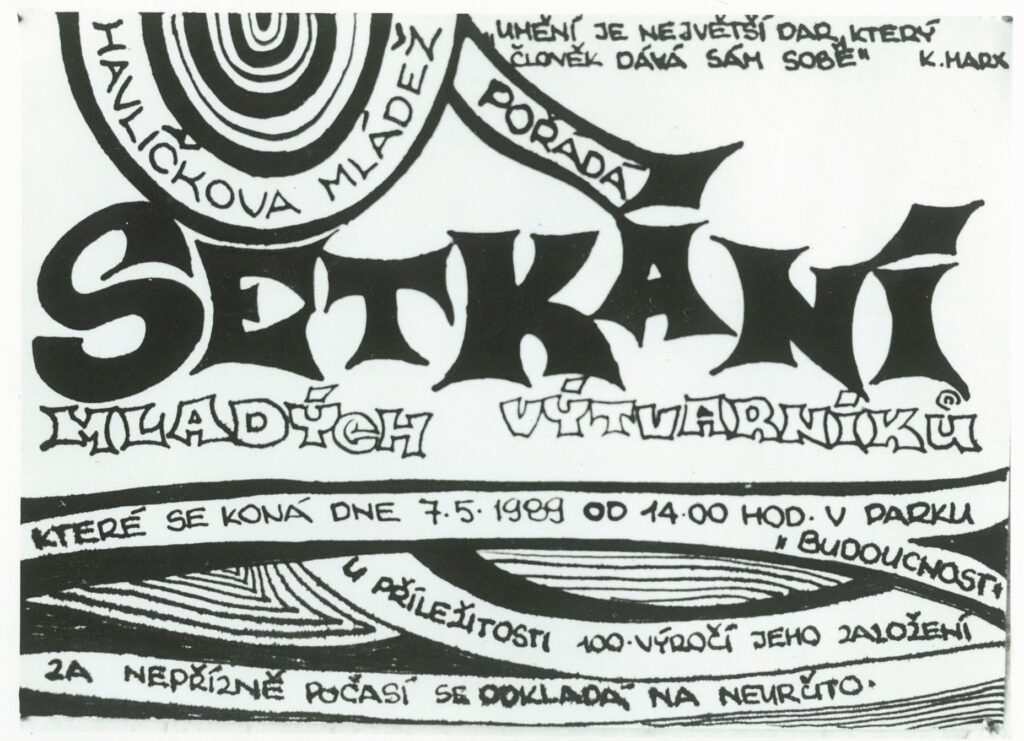 „UMĚNÍ JE NEJVĚTŠÍ DAR, KTERÝ
ČLOVĚK DÁVÁ SÁM SOBĚ" K. MARX
HAVLÍČKOVA MLÁDEŽ
POŘÁDÁ
SETKÁNÍ
MLADÝCH VÝTVARNÍKŮ
KTERÉ SE KONÁ DNE 7.5.1989 OD 14.00 HOD. V PARKU
„BUDOUCNOST"
U PŘÍLEŽITOSTI 100.VÝROČÍ JEHO ZALOŽENÍ
ZA NEPŘÍZNĚ POČASÍ SE ODKLADÁ NA NEURČITO.